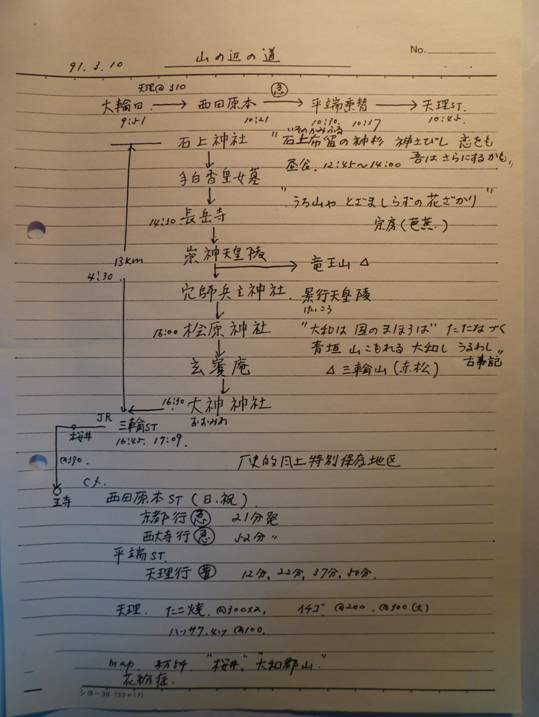 山の辺の道
No.
91. 3. 10
天理@310 急
大輪田 → 西田原本 → 平端乗替 → 天理ST.
9:51 10:21 10:30 10:37 10:45
いそのかみふる
石上神社 "石上布留の神杉 神さびし 恋をも
吾はさらにするかも"
昼食. 12:45～14:00
手白香皇女墓
"うち山や とざましらずの 花ざかり"
14:30 長岳寺
宗房(芭蕉.)
崇神天皇陵 → 竜王山 △
13km
4:30
穴師兵主神社. 景行天皇陵
けいこう
16:00 桧原神社 "大和は 国のまほろば" たたなづく
青垣 山こもれる 大和し うるわし"
古事記
玄賓庵 △ 三輪山 (赤松)
16:30 大神神社
おおみわ
JR 三輪ST
桜井 16:45. 17:09
@390.
王寺
歴史的風土特別保存地区
cf.
西田原本ST (日,祝)
京都行 急 21分発
西大寺行 急 52分 〃
平端ST.
天理行 普 12分, 22分, 37分, 50分.
天理. たこ焼. @300x2, イチゴ @200. @300 (土)
ハッサク @100.
map "桜井", "大和郡山"
花粉症.